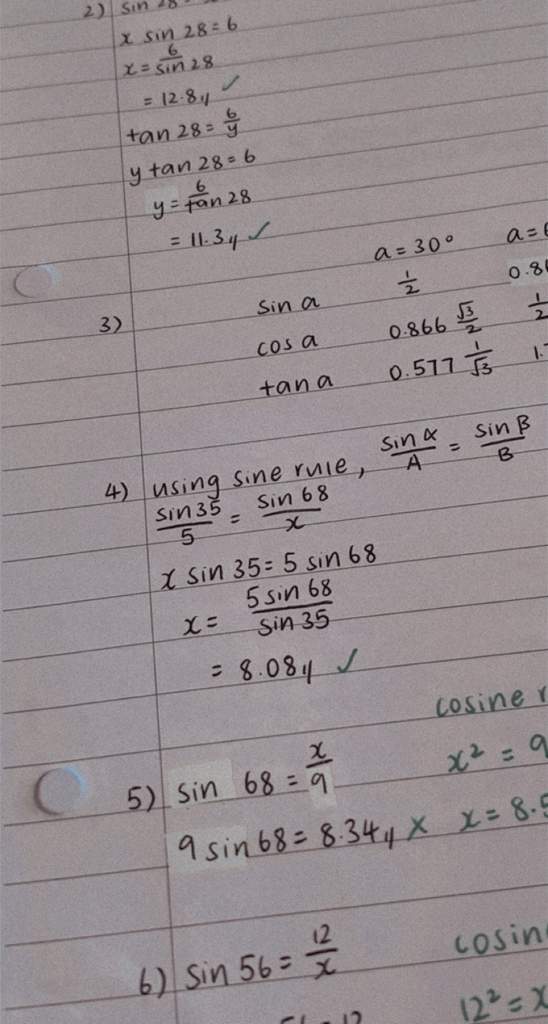 2) sin 28
x sin 28 = 6
x = 6/sin 28
= 12.8 ✓
tan 28 = 6/y
y tan 28 = 6
y = 6/tan 28
= 11.3 ✓
a = 30° a =
3) sin a 1/2 0.8
cos a 0.866 √3/2 1/2
tan a 0.577 1/√3 1.
4) using sine rule, sin α/A = sin β/B
sin 35/5 = sin 68/x
x sin 35 = 5 sin 68
x = 5 sin 68/sin 35
= 8.08 ✓
cosine r
5) sin 68 = x/9 x² = 9
9 sin 68 = 8.34 × x = 8.5
6) sin 56 = 12/x cosin
12² = x